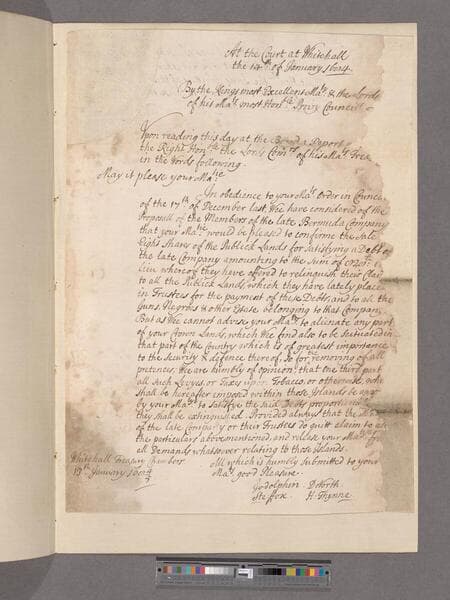 At the Court at Whitehall
the 14th of January 1684
By the Kings most Excellent Maty & the Lords
of his Mats most Honble Privy Councill
Upon reading this day at the Board a Report
the Right Honble the Lords Comrs of his Mats Trea
in the words following
May it please your Matie
In obedience to your Mats Order in Councell
of the 17th of December last, Wee have considered of the
Proposall of the Members of the late Bermuda Company
that your Matie would be pleased to confirme the Sale
Eight Shares of the Publick Lands for Satisfying a Debt of
the late Company amounting to the Sum of
lieu whereof they have offered to relinquish their Claim
to all the Publick Lands, which they have lately place
in Trustees for the payment of these Debts, and to all the
Guns, Negroes & other Estate belonging to that Company
But as Wee cannot advise your Matie to alienate any part
of your Crown Lands, which We find also to be Scituated in
that part of the Country which is of greatest importance
to the Security & defence thereof, So for the removing of all
pretences, We are humbly of opinion, that one third part
all Such Levyes or Taxes upon Tobacco, or otherwise,
shall be hereafter imposed within those Islands be
by your Maty to Satisfye the said Debts proportionably
they shall be extinguished. Provided always that the
of the late Company or their Trustees do quitt claim to
the particulars abovementioned, and release your Maty
all Demands whatsoever relating to those Islands.
All which is humbly submitted to your
Mats good Pleasure
Whitehall Treasury Chamber
13th January 1684
Godolphin D North
Ste Fox H Thynne